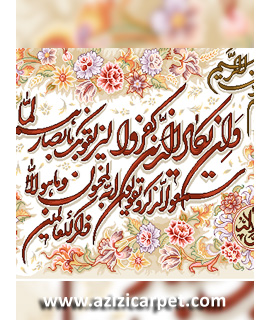 الرحیم
وان یکاد الذین کفروا لیزلقونک بابصارهم لما
سمعوا الذکر و یقولون انه لمجنون و ما هو الا
ذکر للعالمین
www.azizicarpet.com